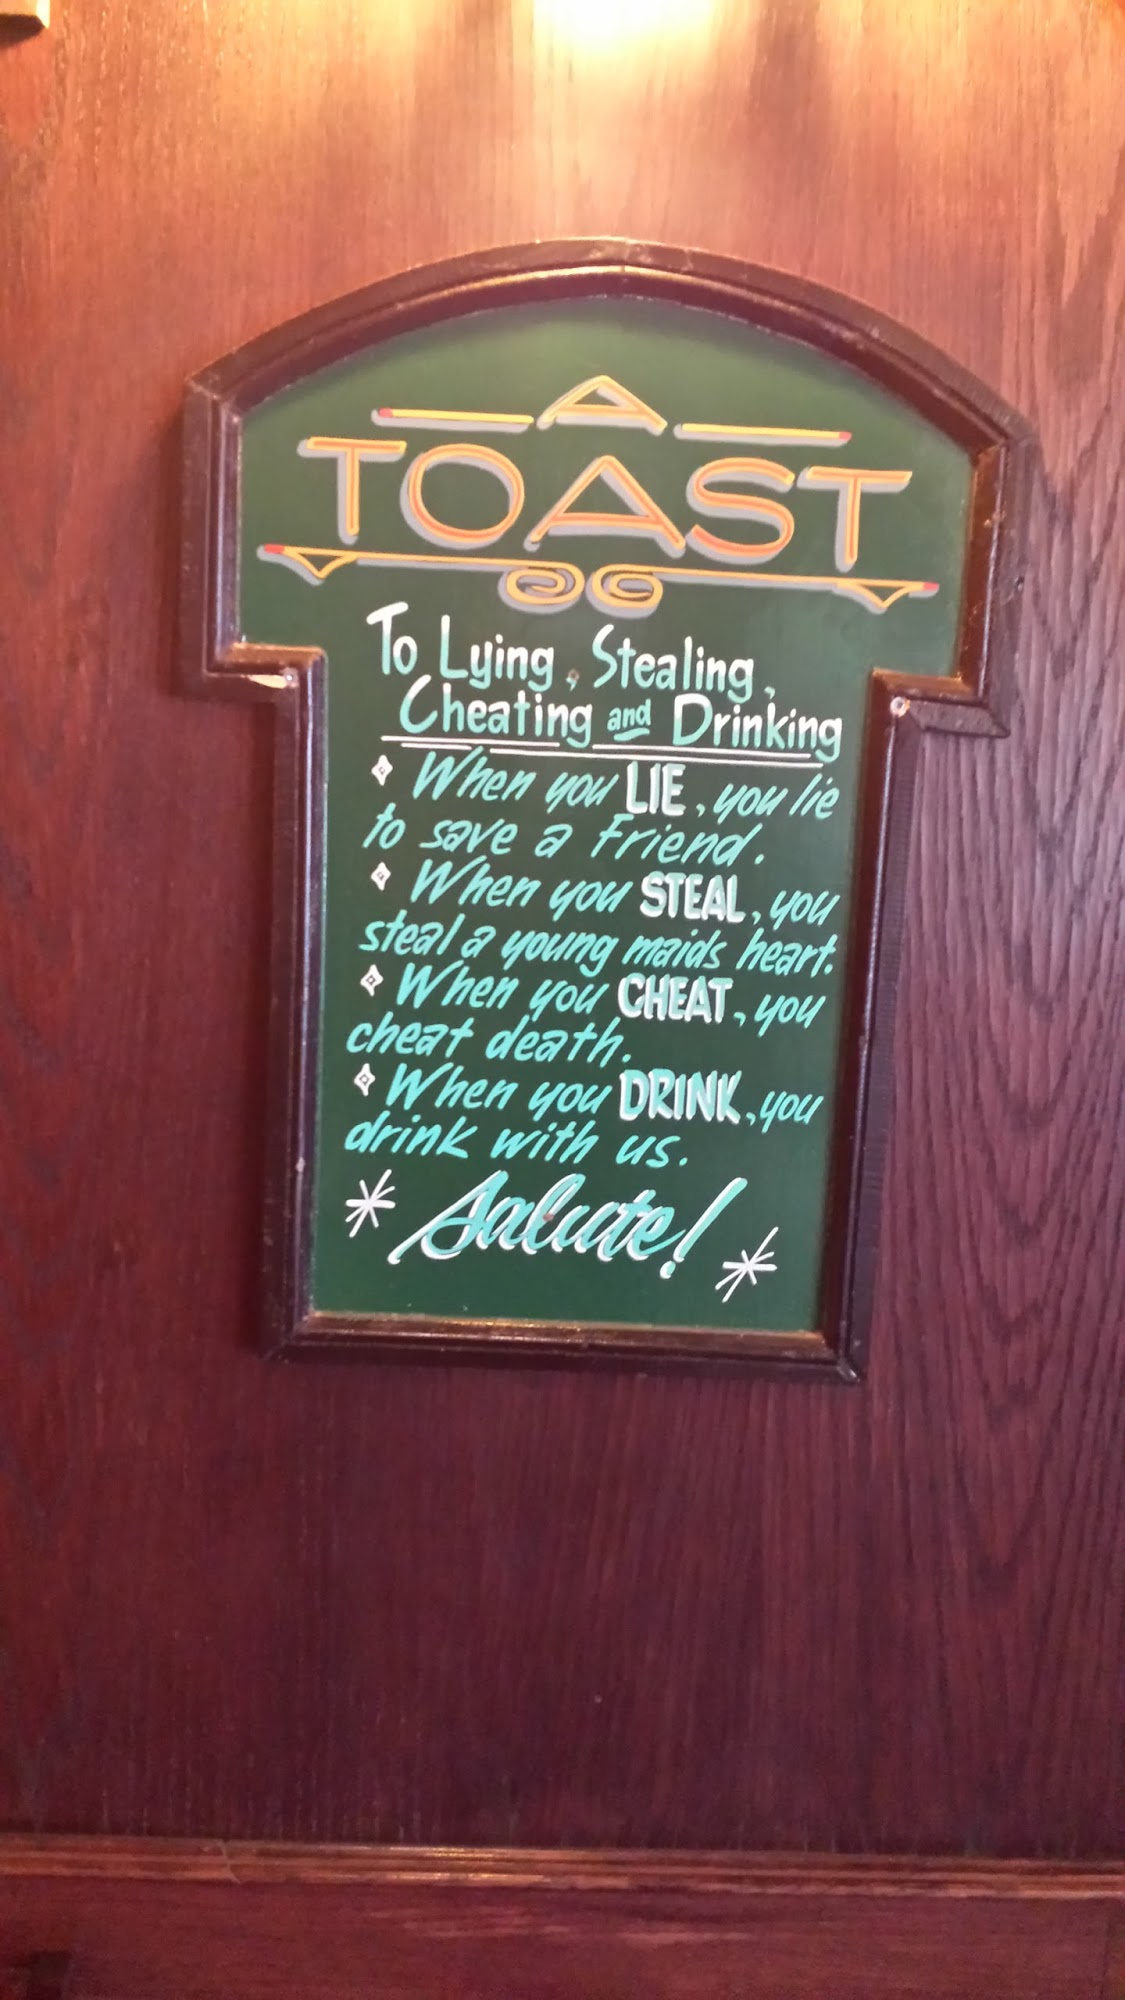 A
TOAST
To Lying, Stealing,
Cheating and Drinking
When you LIE, you lie
to save a Friend.
When you STEAL, you
steal a young maids heart.
When you CHEAT, you
cheat death.
When you DRINK, you
drink with us.
Salute!